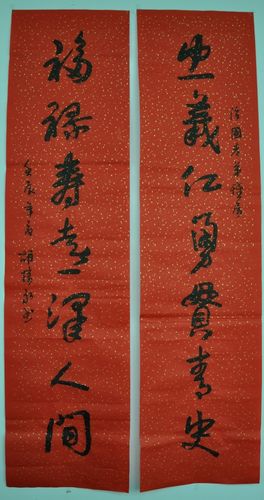 忠義仁勇貫青史
福祿壽喜澤人間
壬辰年